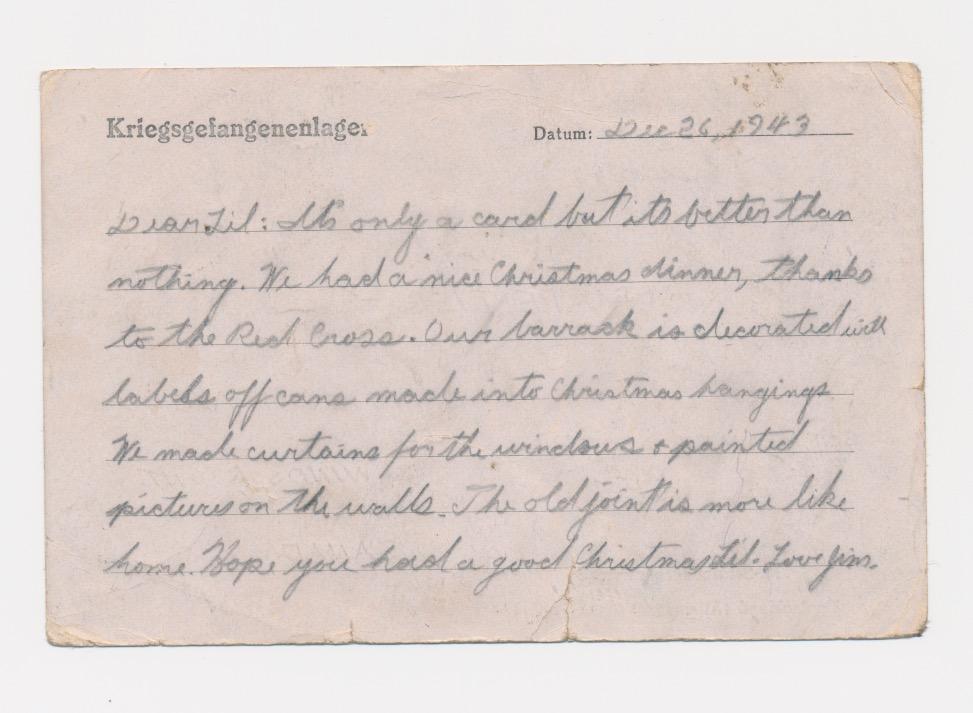 Kriegsgefangenenlager
Datum: Dec 26, 1943
Dear Lil: It's only a card but it's better than
nothing. We had a nice Christmas dinner, thanks
to the Red Cross. Our barrack is decorated with
labels off cans made into Christmas hangings
We made curtains for the windows + painted
pictures on the walls. The old joint is more like
home. Hope you had a good Christmas Lil. Love Jim.